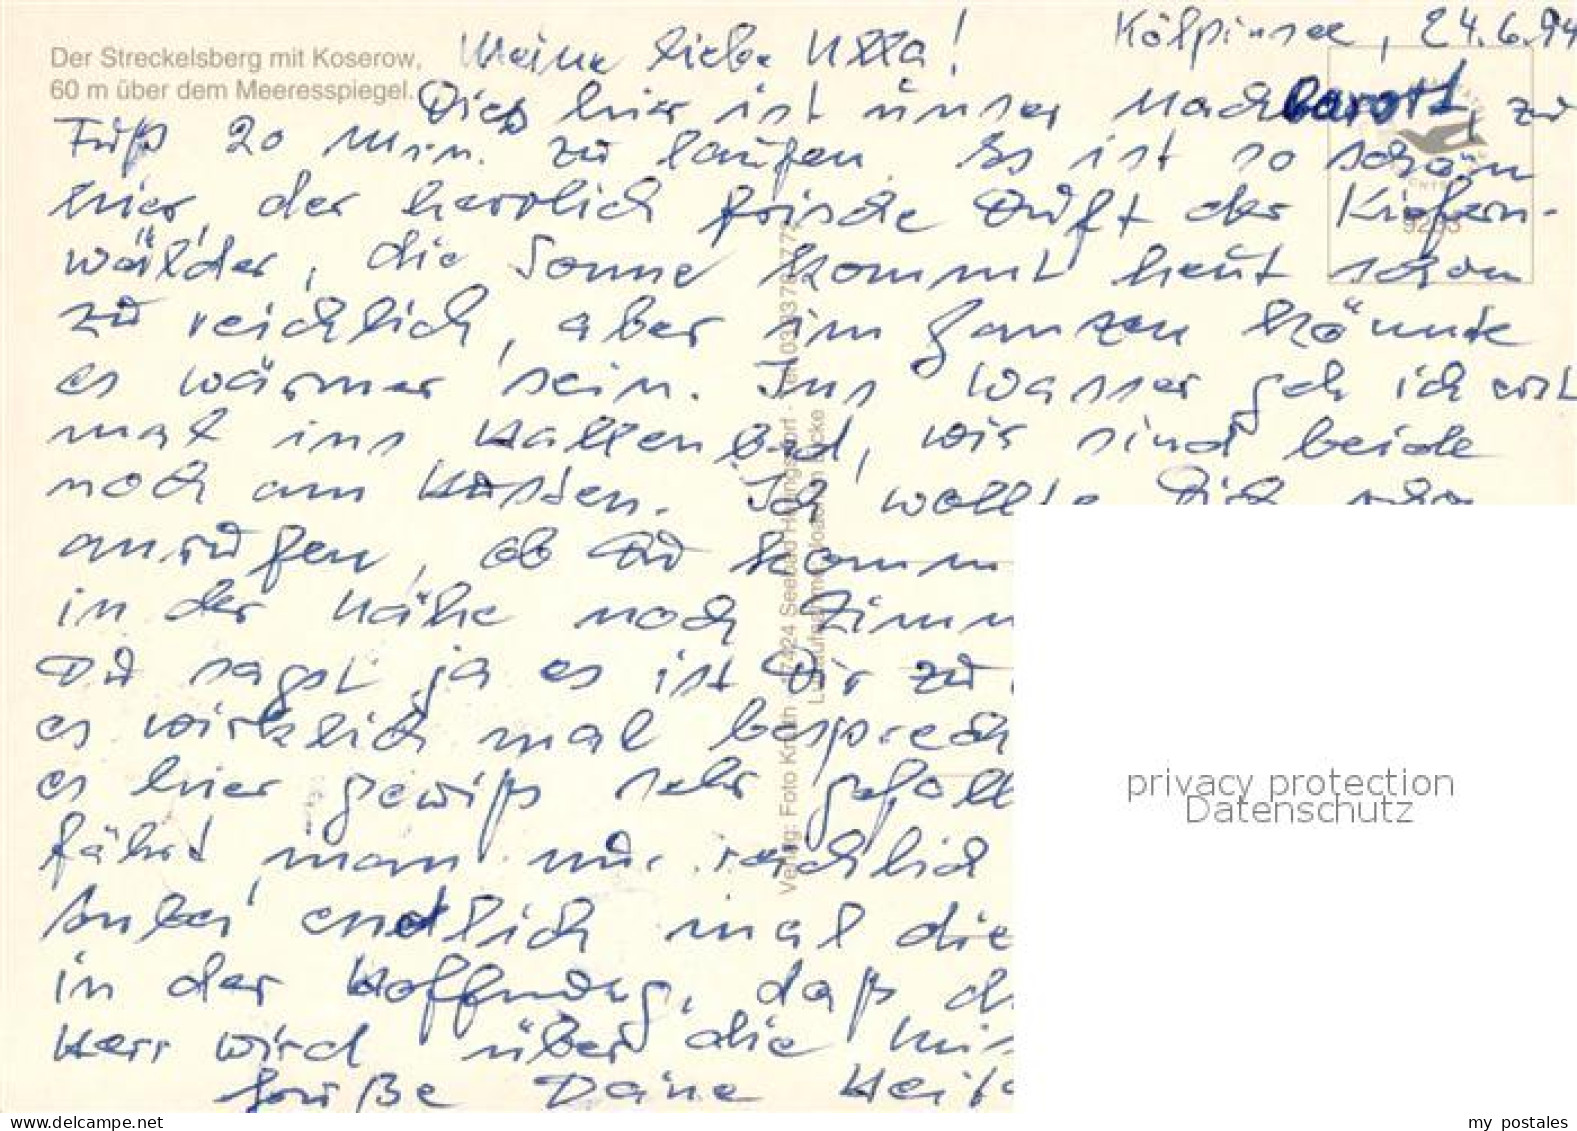 Der Streckelsberg mit Koserow,
60 m über dem Meeresspiegel.
Meine liebe Ulla!
Kölpinsee, 24.6.94
Dies hier ist unser Nachbarort, zu
Fuß 20 Min. zu laufen. Es ist so schön
hier, der herrlich frische Duft der Kiefern-
wälder, die Sonne kommt heut schon
zu reichlich, aber im ganzen könnte
es wärmer sein. Ins Wasser geh ich erst
mal ins Hallenbad, wir sind beide
noch am Husten. Ich wollte Dich schon
anrufen, ob Du komm
in der Nähe noch Zimm
Du sagst ja es ist Dir zu
es wirklich mal besprech
es hier gewiß sehr gefall
fährt man nur reichlich
Anbei endlich mal die
in der Hoffnung, daß d
Herr wird über die
Grüße Deine
Verlag: Foto Krüth · 17424 Seebad Heringsdorf · Tel. 038378
Luftaufnahme Joachim Lücke
9253
privacy protection
Datenschutz
my postales